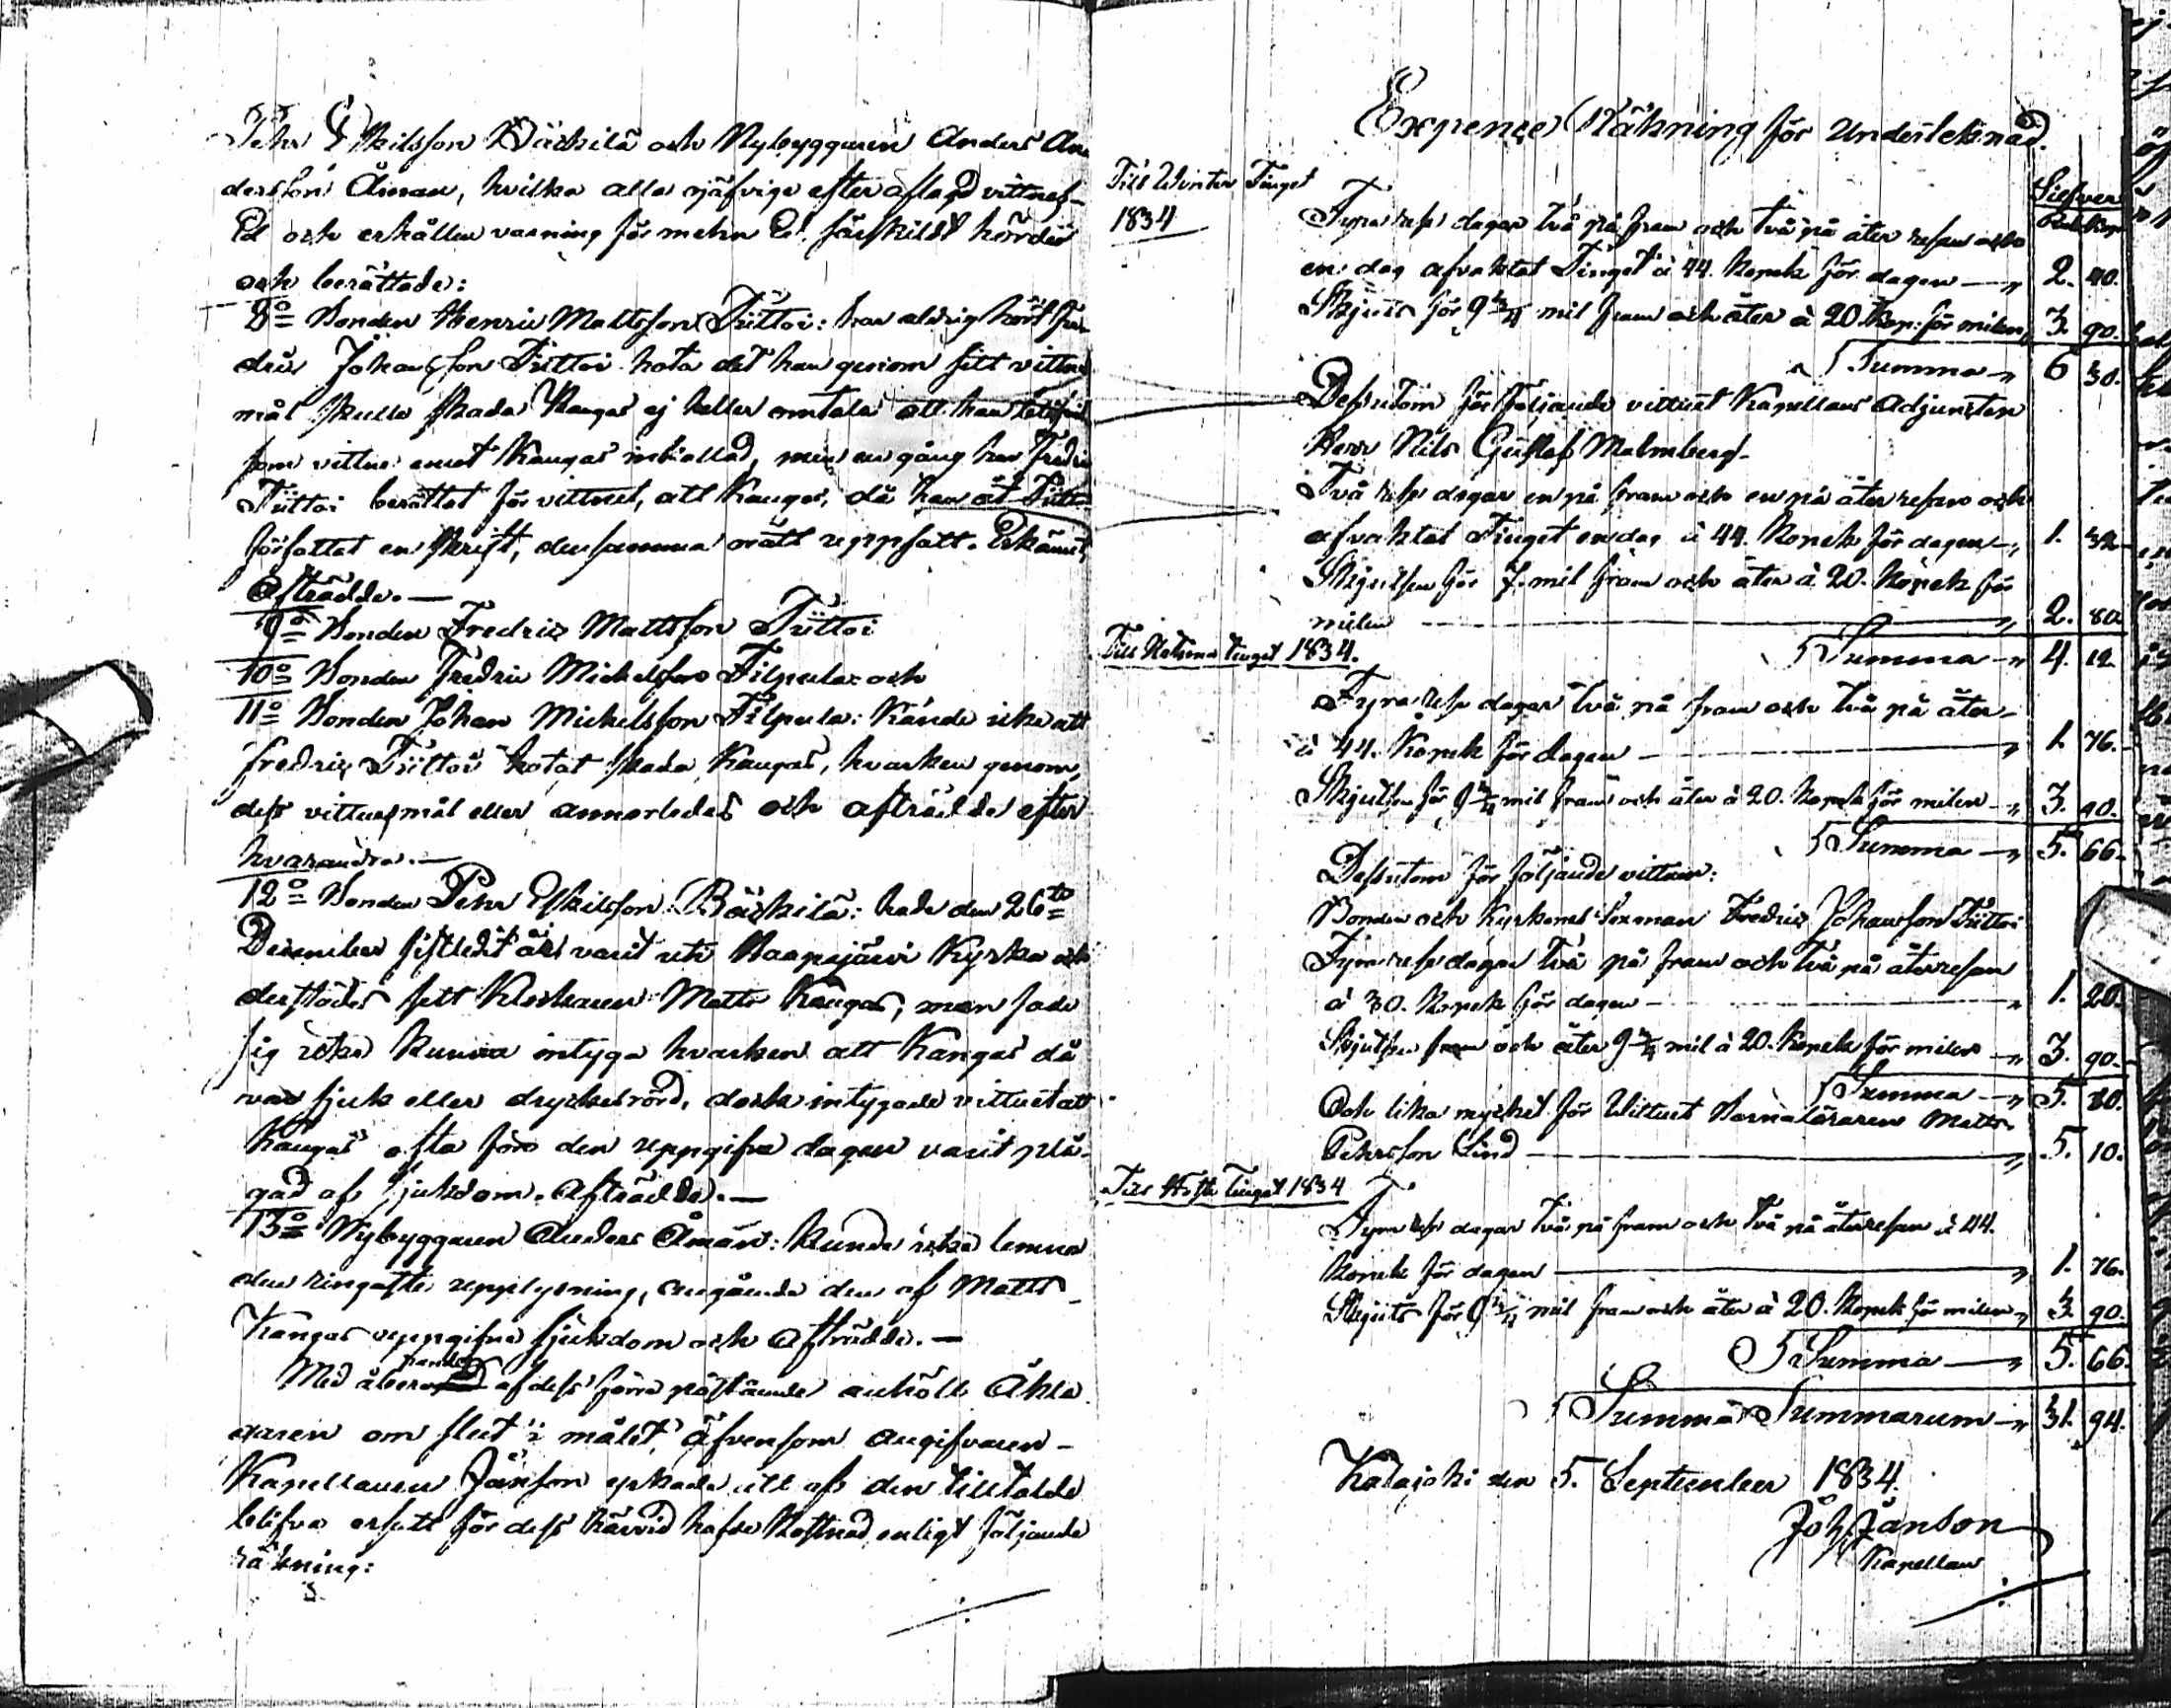 Pehr Eskilsson Bäckilä och Nybyggaren Anders An-
dersson Åman, hvilka alla ojäfvige efter aflagd vittnes-
Ed och erhållen varning för mehn Ed, särskildt hördes
och berättade:
8o Bonden Henric Mattsson Tiittoi: har aldrig hört Fre-
dric Johansson Tiittoi hota det han genom sitt vittnes
mål skulle skada Kangas ej heller omtala att han
som vittne emot Kangas inkallad, men en gång har Fredric
Tiittoi berättat för vittnet, att Kangas, då han åt Tiittoi
författat en skrift, densamma orätt uppsatt. Erkändt,
Afträdde.—
9o Bonden Fredric Mattsson Tiittoi
10o Bonden Fredric Mickelsson Filpula och
11o Bonden Johan Mickelsson Filpula: kände icke att
fredric Tiittoi hotat skada Kangas, hvarken genom
dess vittnesmål eller annorledes och afträdde efter
hvarandra.—
12o Bonden Pehr Eskilsson Bäckilä: hade den 26te
December sistledit år varit uti Haapajärvi Kyrka och
derstädes sett Klockaren Matts Kangas, men sade
sig icke kunna intyga hvarken att Kangas då
var sjuk eller dryckesrörd, dock intygade vittnet att
Kangas ofta före den uppgifna dagen varit plå-
gad af sjukdom. Afträdde.—
13o Nybyggaren Anders Åman: kunde icke lemna
den ringaste upplysning, angående den af Matts
Kangas uppgifna sjukdom och Afträdde.—
Med åberopande af dess förra påstående anhöll Åkla
garen om slut i målet, äfvensom angifvaren-
Kapellanen Jänson yrkade att af den tilltalde
blifva ersatt för dess härvid hafde kostnad enligt följande
räkning:
Expence Räkning för Undertecknad.
Till Winter Tinget
1834
Silfver
Rub. Kop.
Fyra rese dagar två på fram och två på åter resan och
en dag afvaktat Tinget à 44. Kopek för dagen — " 2. 40.
Skjuts för 9 3/4 mil fram och åter à 20 Kop: för milen " 3. 90.
Summa — " 6 30.
Dessutom för följande vittnet Kapellans Adjuncten
Herr Nils Gustaf Malmberg-
Två rese dagar en på fram och en på åter resan och
afvaktat Tinget en dag à 44. Kopek för dagen — " 1. 32
Skjutsen för 7. mil fram och åter à 20. Kopek för
milen — " 2. 80.
Summa — " 4. 12.
Till tinget 1834.
Fyra rese dagar två på fram och två på åter-
à 44. Kopek för dagen — " 1. 76.
Skjutsen för 9 3/4 mil fram och åter à 20. Kopek för milen — " 3. 90.
Summa — " 5. 66.
Dessutom för följande vittnen:
Bonden och Kyrkones Sexman Fredric Johansson Tiittoi
Fyra rese dagar två på fram och två på återresan
à 30. Kopek för dagen — " 1. 20.
Skjutsen fram och åter 9 3/4 mil à 20. Kopek för milen — " 3. 90.
Summa — " 5. 10.
Och lika mycket för Wittnet Barnaläraren Matts
Pehrsson Lind — " 5. 10.
Till Höste Tinget 1834
Fyra rese dagar två på fram och två på återresan à 44.
Kopek för dagen — " 1. 76.
Skjuts för 9 3/4 mil fram och åter à 20. Kopek för milen " 3. 90.
Summa — " 5. 66.
Summa Summarum — " 31. 94.
Kalajoki den 5. September 1834.
Joh. Jänson
Kapellan